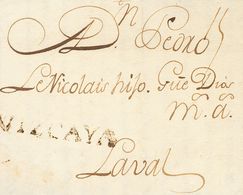 A Dn Pedro
Le Nicolais hijo. Gue Dios
m. a.
VIZCAYA
Laval